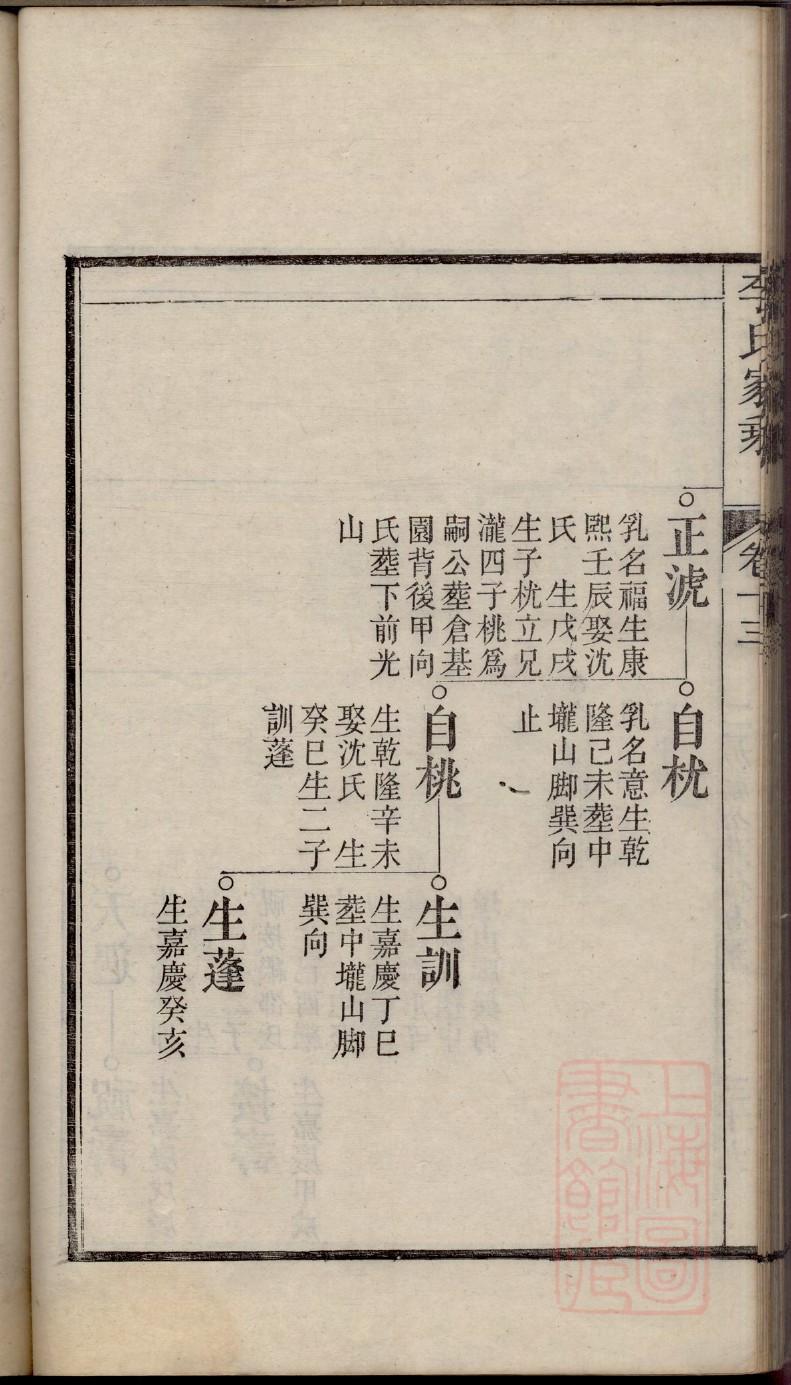 李氏家乘
卷十三
正淲
乳名福生康
熙壬辰娶沈
氏　生戊戌
生子枕立兄
瀧四子桃爲
嗣公塟倉基
園背後甲向
氏塟下前光
山
自枕
乳名意生乾
隆己未塟中
壠山脚巽向
止
自桃
生乾隆辛未
娶沈氏　生
癸巳生二子
訓蓬
生訓
生嘉慶丁巳
塟中壠山脚
巽向
生蓬
生嘉慶癸亥
上海圖
書館藏